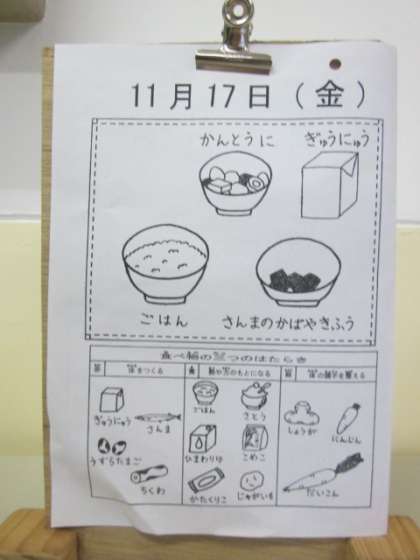 11月17日（金）
かんとうに
ぎゅうにゅう
ごはん
さんまのかばやきふう
食べ物の三つのはたらき
体をつくる
体の調子を整える
ぎゅうにゅう
さんま
うずらたまご
ちくわ
ごはん
さとう
ひまわりゆ
こめこ
かたくりこ
じゃがいも
しょうが
にんじん
だいこん